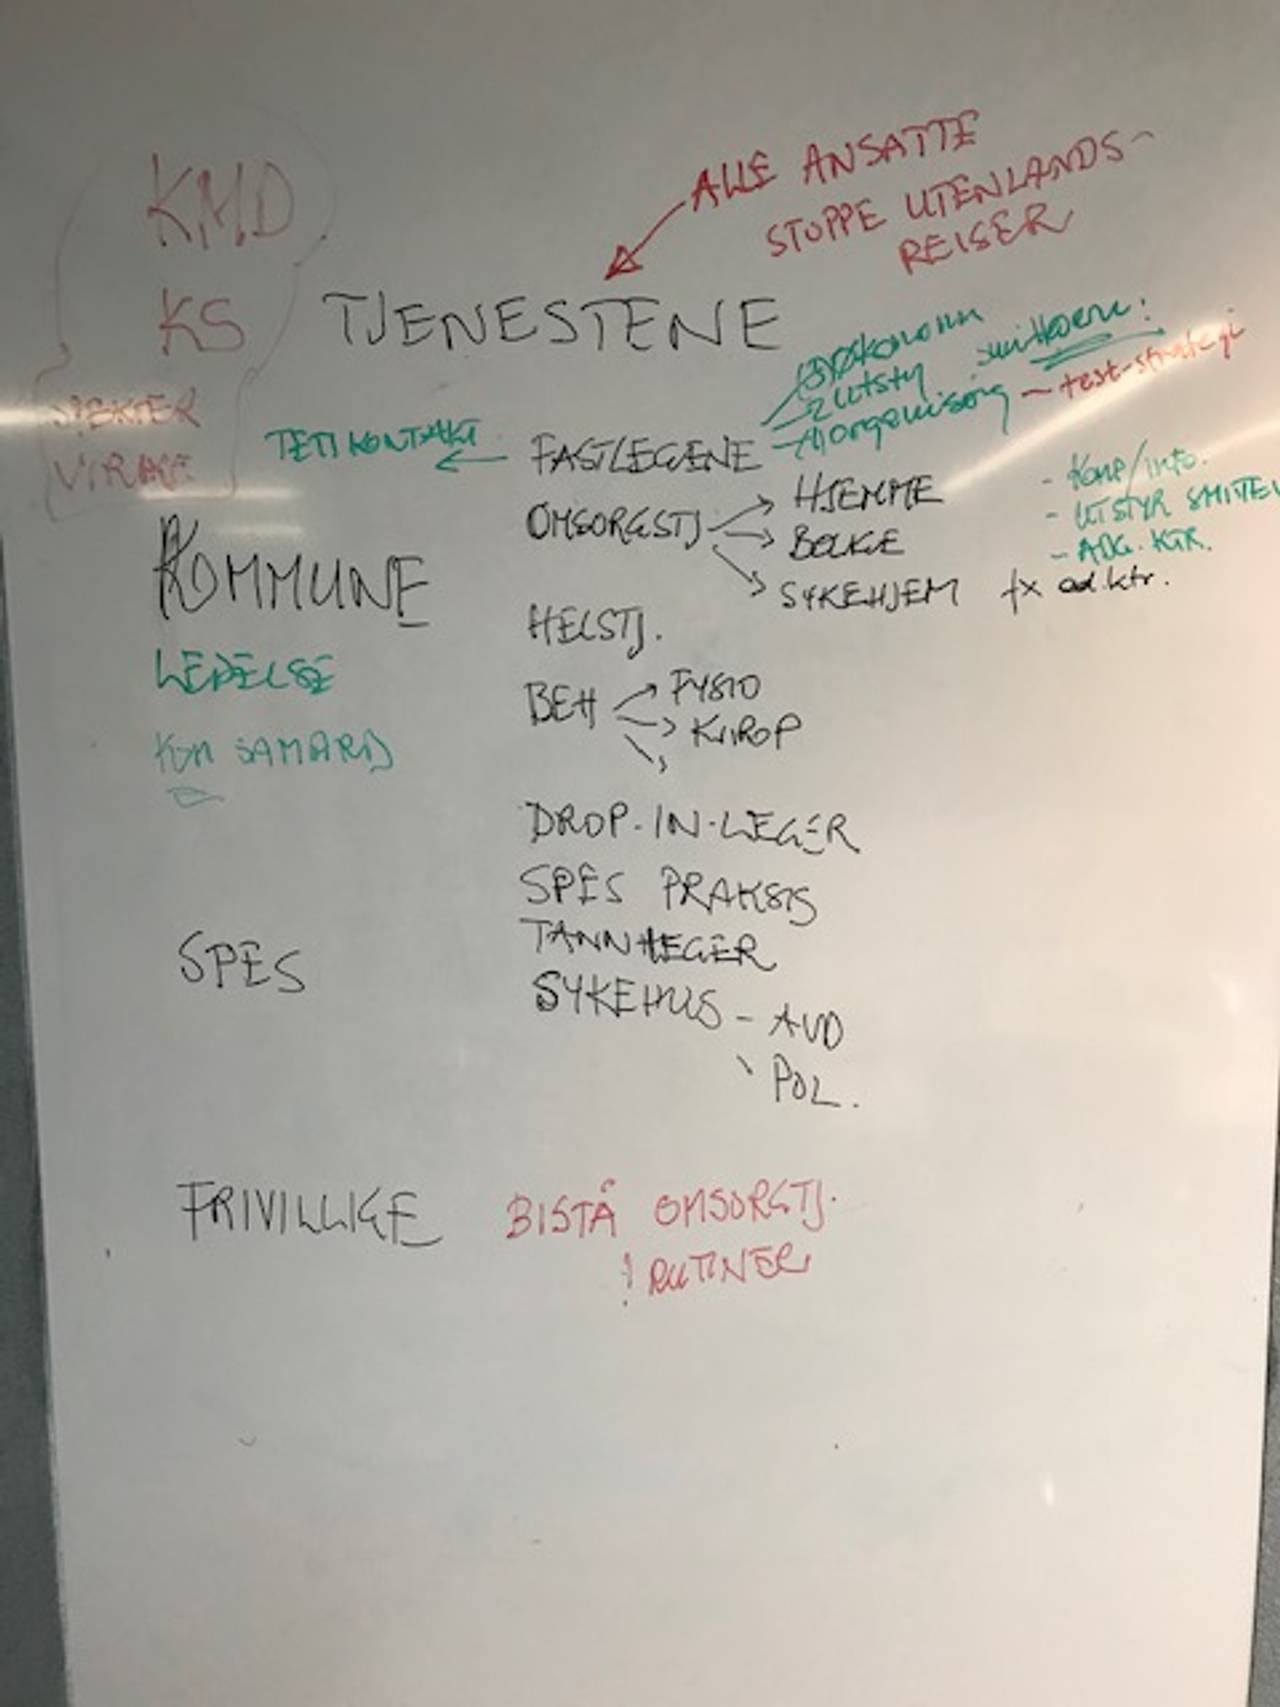 ALLE ANSATTE
STOPPE UTENLANDS-
REISER
KMD
KS
TJENESTENE
3) økonomi
2 Utsty smittevern!
1) organisering - test-strategi
VIRKE
TETT KONTAKT ← FASTLEGENE
OMSORGSTJ → HJEMME
→ BOLIGE
→ SYKEHJEM fx ad.ktr.
- Komp/info.
- UTSTYR SMITTEV
- ADG. KTR.
KOMMUNE
LEDELSE
KOM SAMARB
HELSTJ.
BEH → FYSIO
→ KIROP
DROP-IN-LEGER
SPES PRAKSIS
TANNLEGER
SPES
SYKEHUS - AVD
\ POL.
FRIVILLIGE BISTÅ OMSORGTJ.
! RUTINER